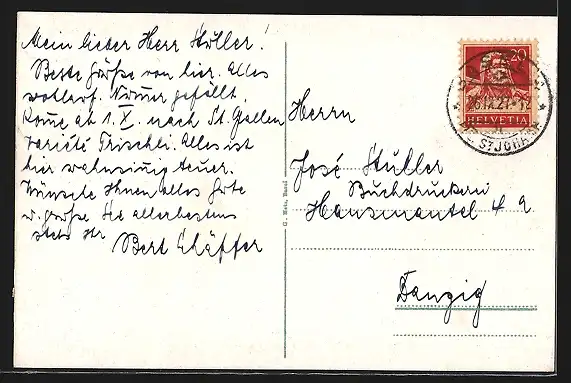 Mein lieber Herr Stüller!
Beste Grüße von hier. Alles
wohlauf. Nummer gefällt
Komme ab 1. X. nach St. Gallen
Varieté Trischli. Alles ist
hier wahnsinnig teuer.
Wünsche Ihnen alles Gute
u. grüße Sie allerbestens
stets Ihr
Bert Schäffer
20
HELVETIA
26.IX.27.-12
ST JOHANN
G. Metz, Basel
Herrn
José Stüller
Buchdruckerei
Hansmantel 4a
Danzig